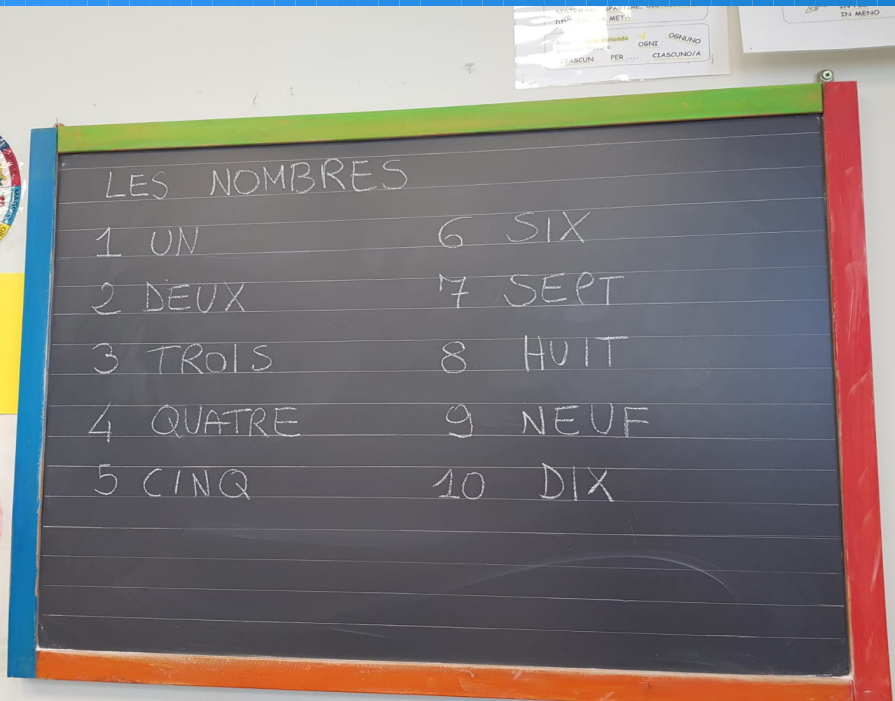 DIVIDERE, LA META'
OGNI OGNUNO
CIASCUN PER .... CIASCUNO/A
IN MENO
LES NOMBRES
1 UN
2 DEUX
3 TROIS
4 QUATRE
5 CINQ
6 SIX
7 SEPT
8 HUIT
9 NEUF
10 DIX